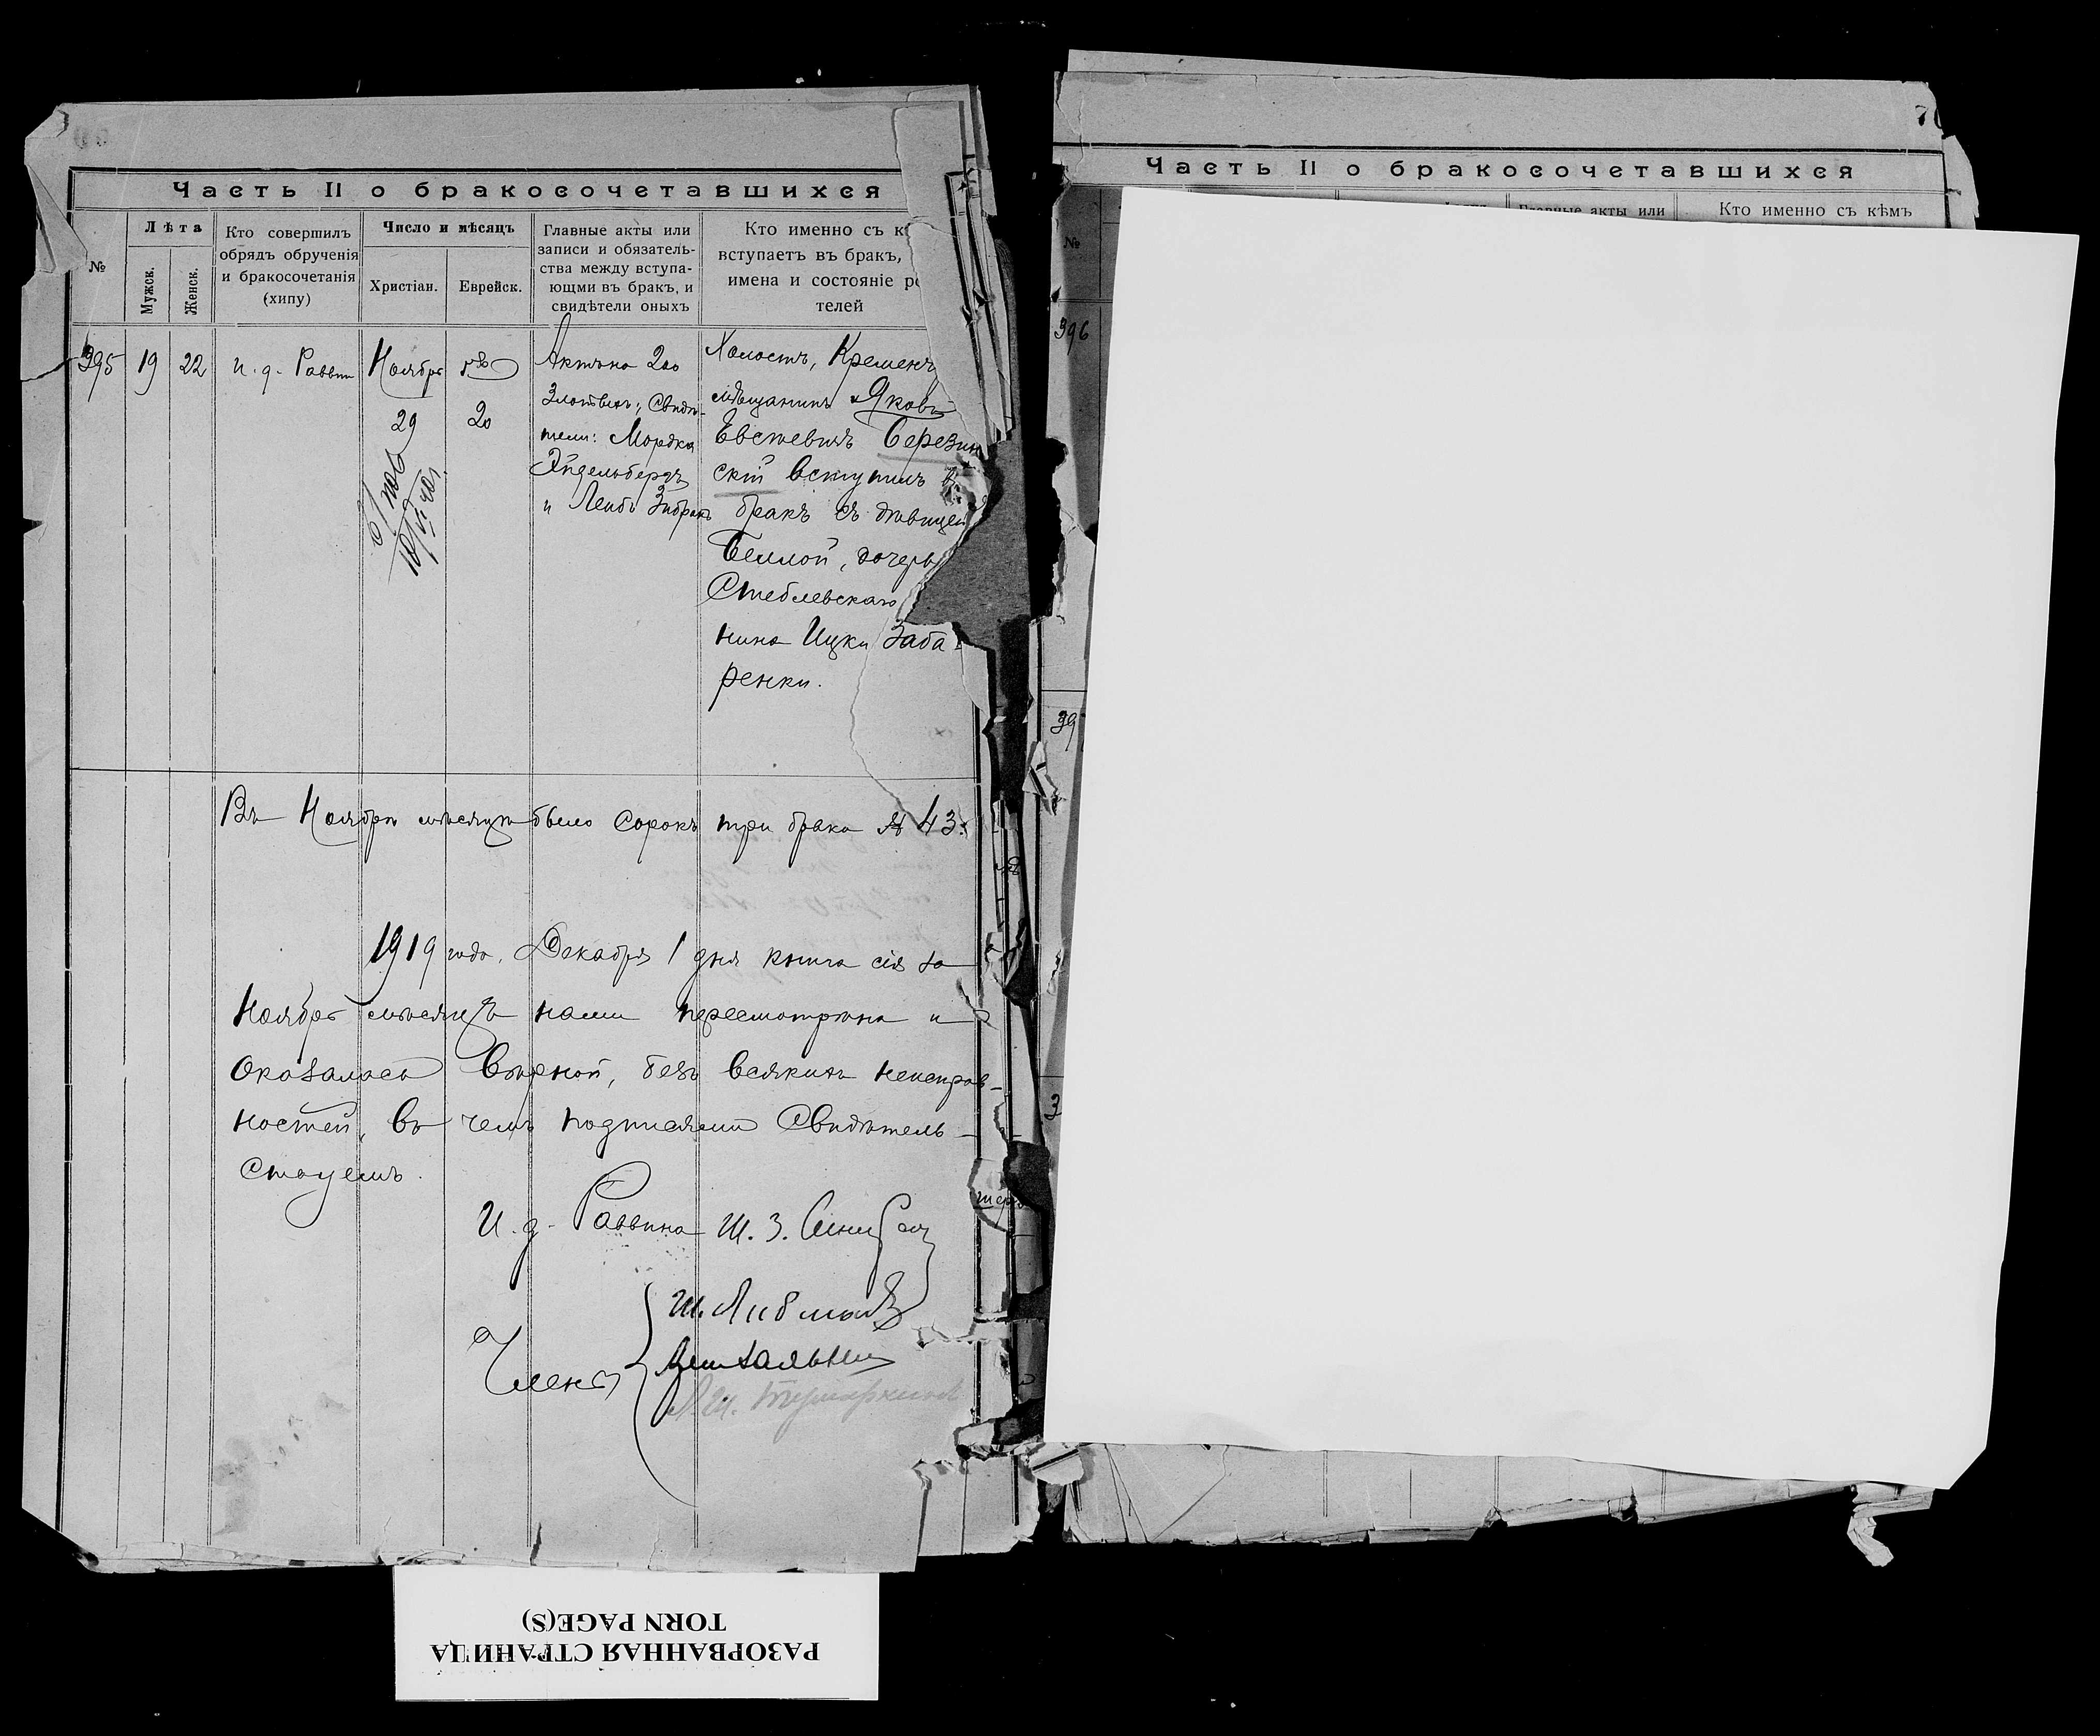 Часть II о бракосочетавшихся
№
Лѣта
Мужск.
Женск.
Кто совершилъ
обрядъ обрученія
и бракосочетанія
(хипу)
Число и мѣсяцъ
Христіан.
Еврейск.
Главные акты или
записи и обязатель-
ства между вступа-
ющми въ бракъ, и
свидѣтели оныхъ
Кто именно съ к
вступаетъ въ бракъ,
имена и состояніе ро
телей
395
19
22
и. д. Раввин
Ноября
29
20
Актъ на 200
Злотыхъ; Свидѣ-
тели: Мордко
Эйдельбергъ
и Лейбъ
Холостъ, Кременч
мѣщанинъ Яковъ
Евсеевичъ Березин
скій вступилъ в
бракъ съ дѣвицей
Беллой, дочерь
Стеблевскаго
нина Ицки Заба
ренки.
Въ Ноябрѣ мѣсяцѣ было сорокъ три брака № 43.
1919 года, Декабря 1 дня книга сія за
Ноябрь мѣсяцъ нами пересмотрѣна и
оказалась вѣрной, безъ всякихъ неисправ-
ностей, въ чемъ подписями Свидѣтель-
ствуемъ.
И. д. Раввина Ш. З.
Члены
Ш.
Часть II о бракосочетавшихся
7
№
Главные акты или
Кто именно съ кѣмъ
396
39
3
РАЗОРВАННАЯ СТРАНИЦА
TORN PAGE(S)